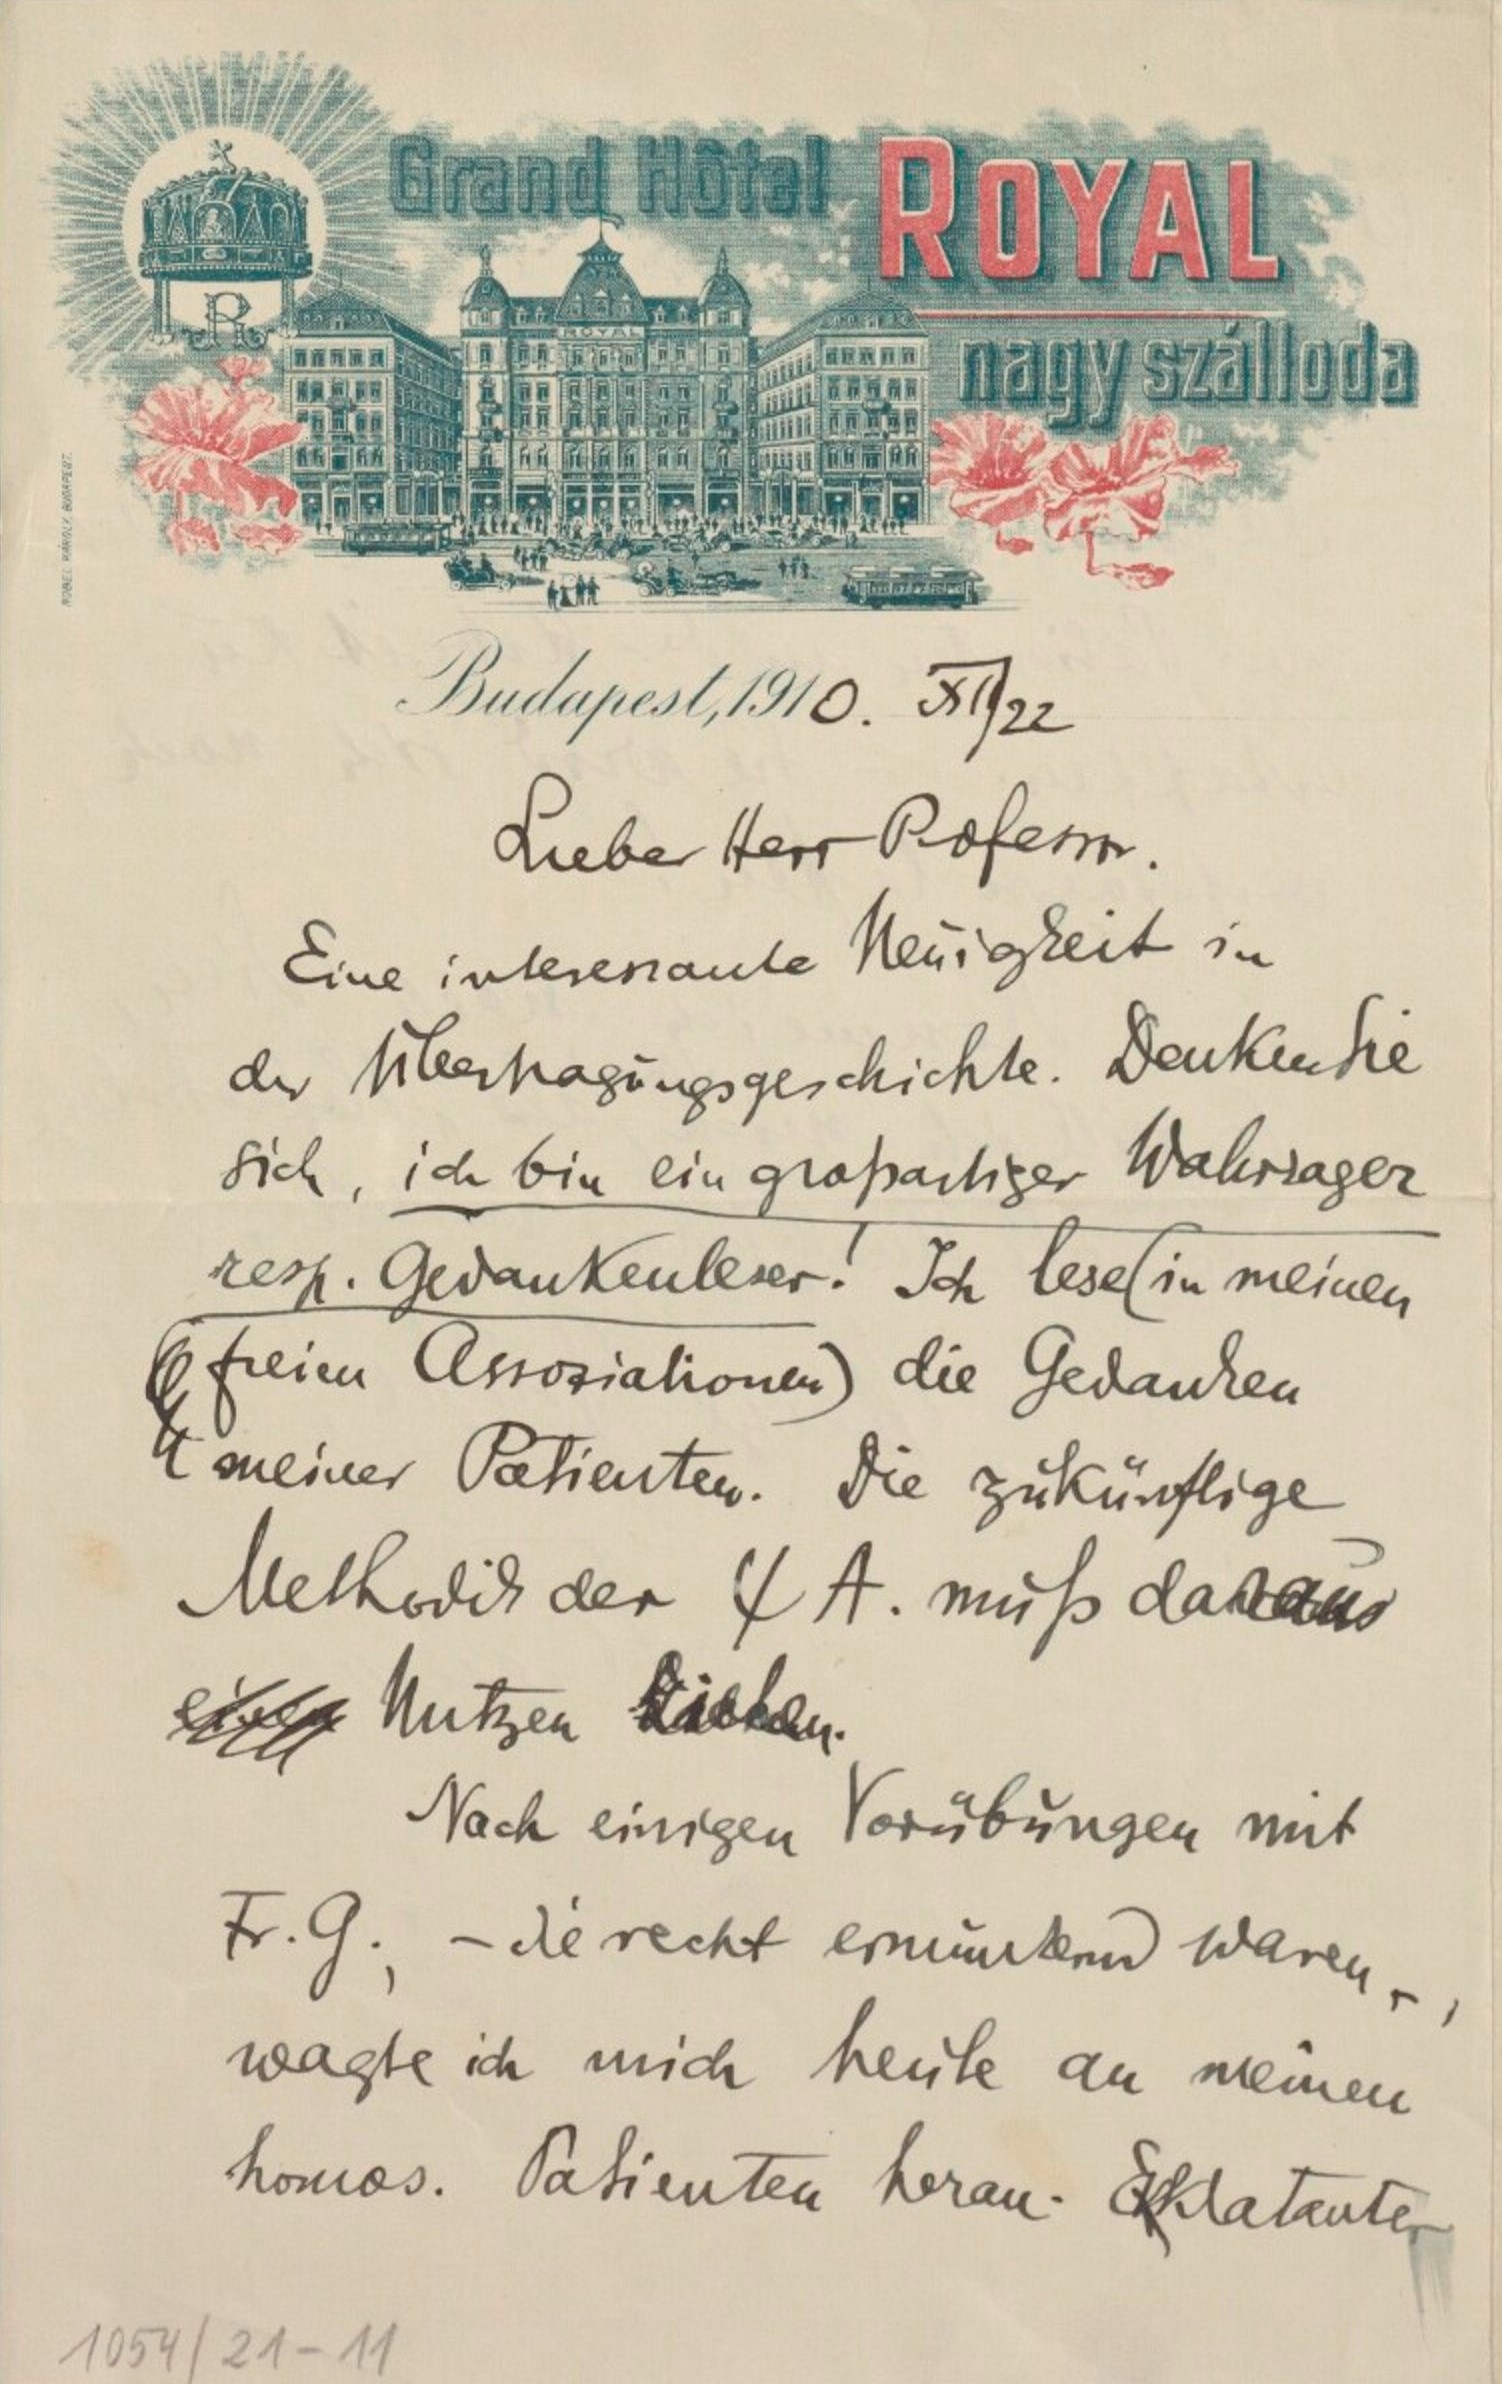 Grand Hôtel ROYAL
nagy szálloda
R
ROYAL
Budapest, 1910. XI/22
Lieber Herr Professor.
Eine interessante Neuigkeit in
der Übertragungsgeschichte. Denken Sie
sich, ich bin ein großartiger Wahrsager
resp. Gedankenleser! Ich lese (in meinen
freien Assoziationen) die Gedanken
meiner Patienten. Die zukünftige
Methodik der ψ A. muß daraus
einen Nutzen ziehen.
Nach einigen Vorübungen mit
Fr. G., – die recht ermunternd waren –,
wagte ich mich heute an meinen
homos. Patienten heran. Eklatanter
1054/21-11